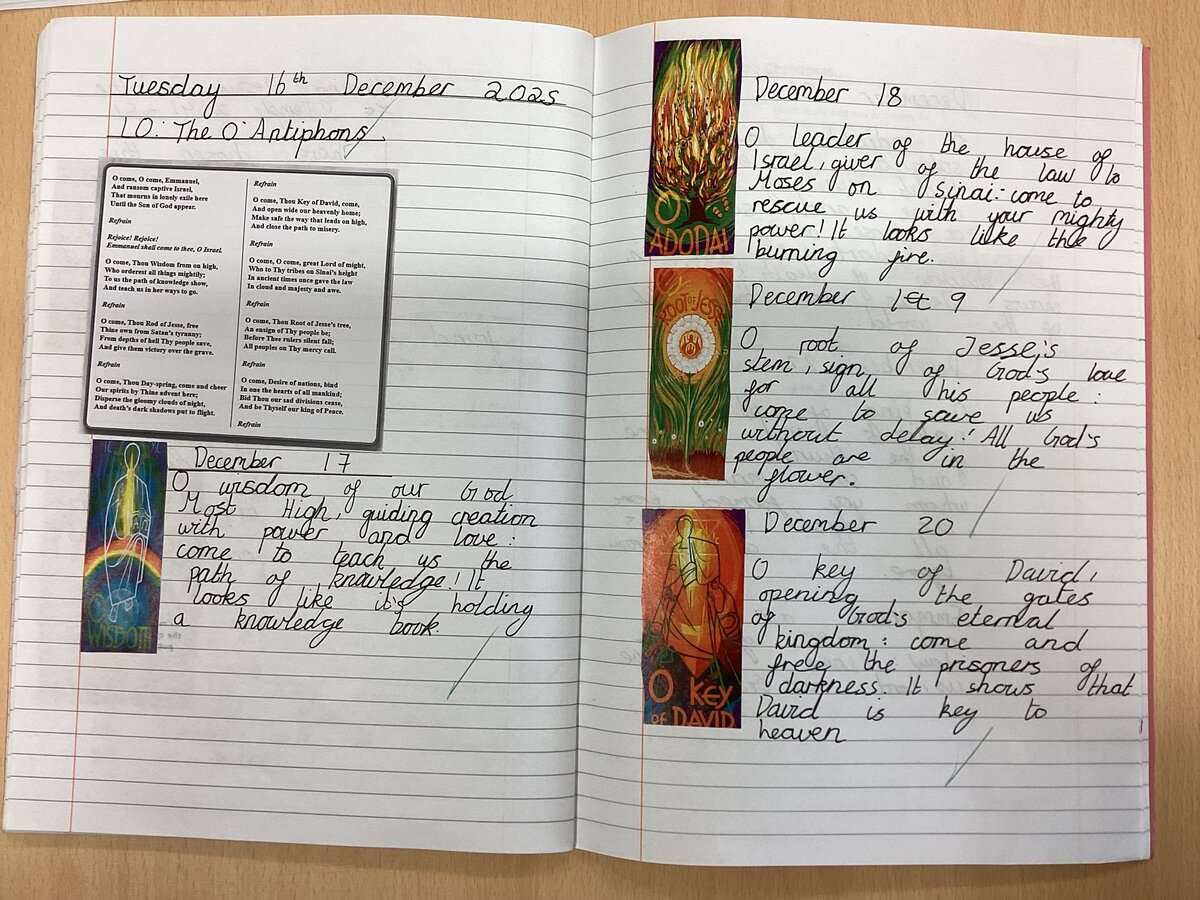 Tuesday 16th December 2025
LO: The O Antiphons
O come, O come, Emmanuel,
And ransom captive Israel,
That mourns in lonely exile here
Until the Son of God appear.
Refrain
Rejoice! Rejoice!
Emmanuel shall come to thee, O Israel.
O come, Thou Wisdom from on high,
Who orderest all things mightily;
To us the path of knowledge show,
And teach us in her ways to go.
Refrain
O come, Thou Rod of Jesse, free
Thine own from Satan's tyranny;
From depths of hell Thy people save,
And give them victory over the grave.
Refrain
O come, Thou Day-spring, come and cheer
Our spirits by Thine advent here;
Disperse the gloomy clouds of night,
And death's dark shadows put to flight.
Refrain
O come, Thou Key of David, come,
And open wide our heavenly home;
Make safe the way that leads on high,
And close the path to misery.
Refrain
O come, O come, great Lord of might,
Who to Thy tribes on Sinai's height
In ancient times once gave the law
In cloud and majesty and awe.
Refrain
O come, Thou Root of Jesse's tree,
An ensign of Thy people be;
Before Thee rulers silent fall;
All peoples on Thy mercy call.
Refrain
O come, Desire of nations, bind
In one the hearts of all mankind;
Bid Thou our sad divisions cease,
And be Thyself our king of Peace.
Refrain
O WISDOM
December 17
O wisdom of our God
Most High, guiding creation
with power and love:
come to teach us the
path of knowledge! It
looks like it's holding
a knowledge book.
O
ADONAI
December 18
O leader of the house of
Israel, giver of the law to
Moses on sinai: come to
rescue us with your mighty
power! It looks like the
burning fire.
ROOT OF JESSE
December 19
O root of Jesse's
stem, sign of God's love
for all his people:
come to save us
without delay! All God's
people are in the
flower.
O KEY
OF DAVID
December 20
O key of David,
opening the gates
of God's eternal
kingdom: come and
free the prisoners of
darkness. It shows that
David is key to
heaven